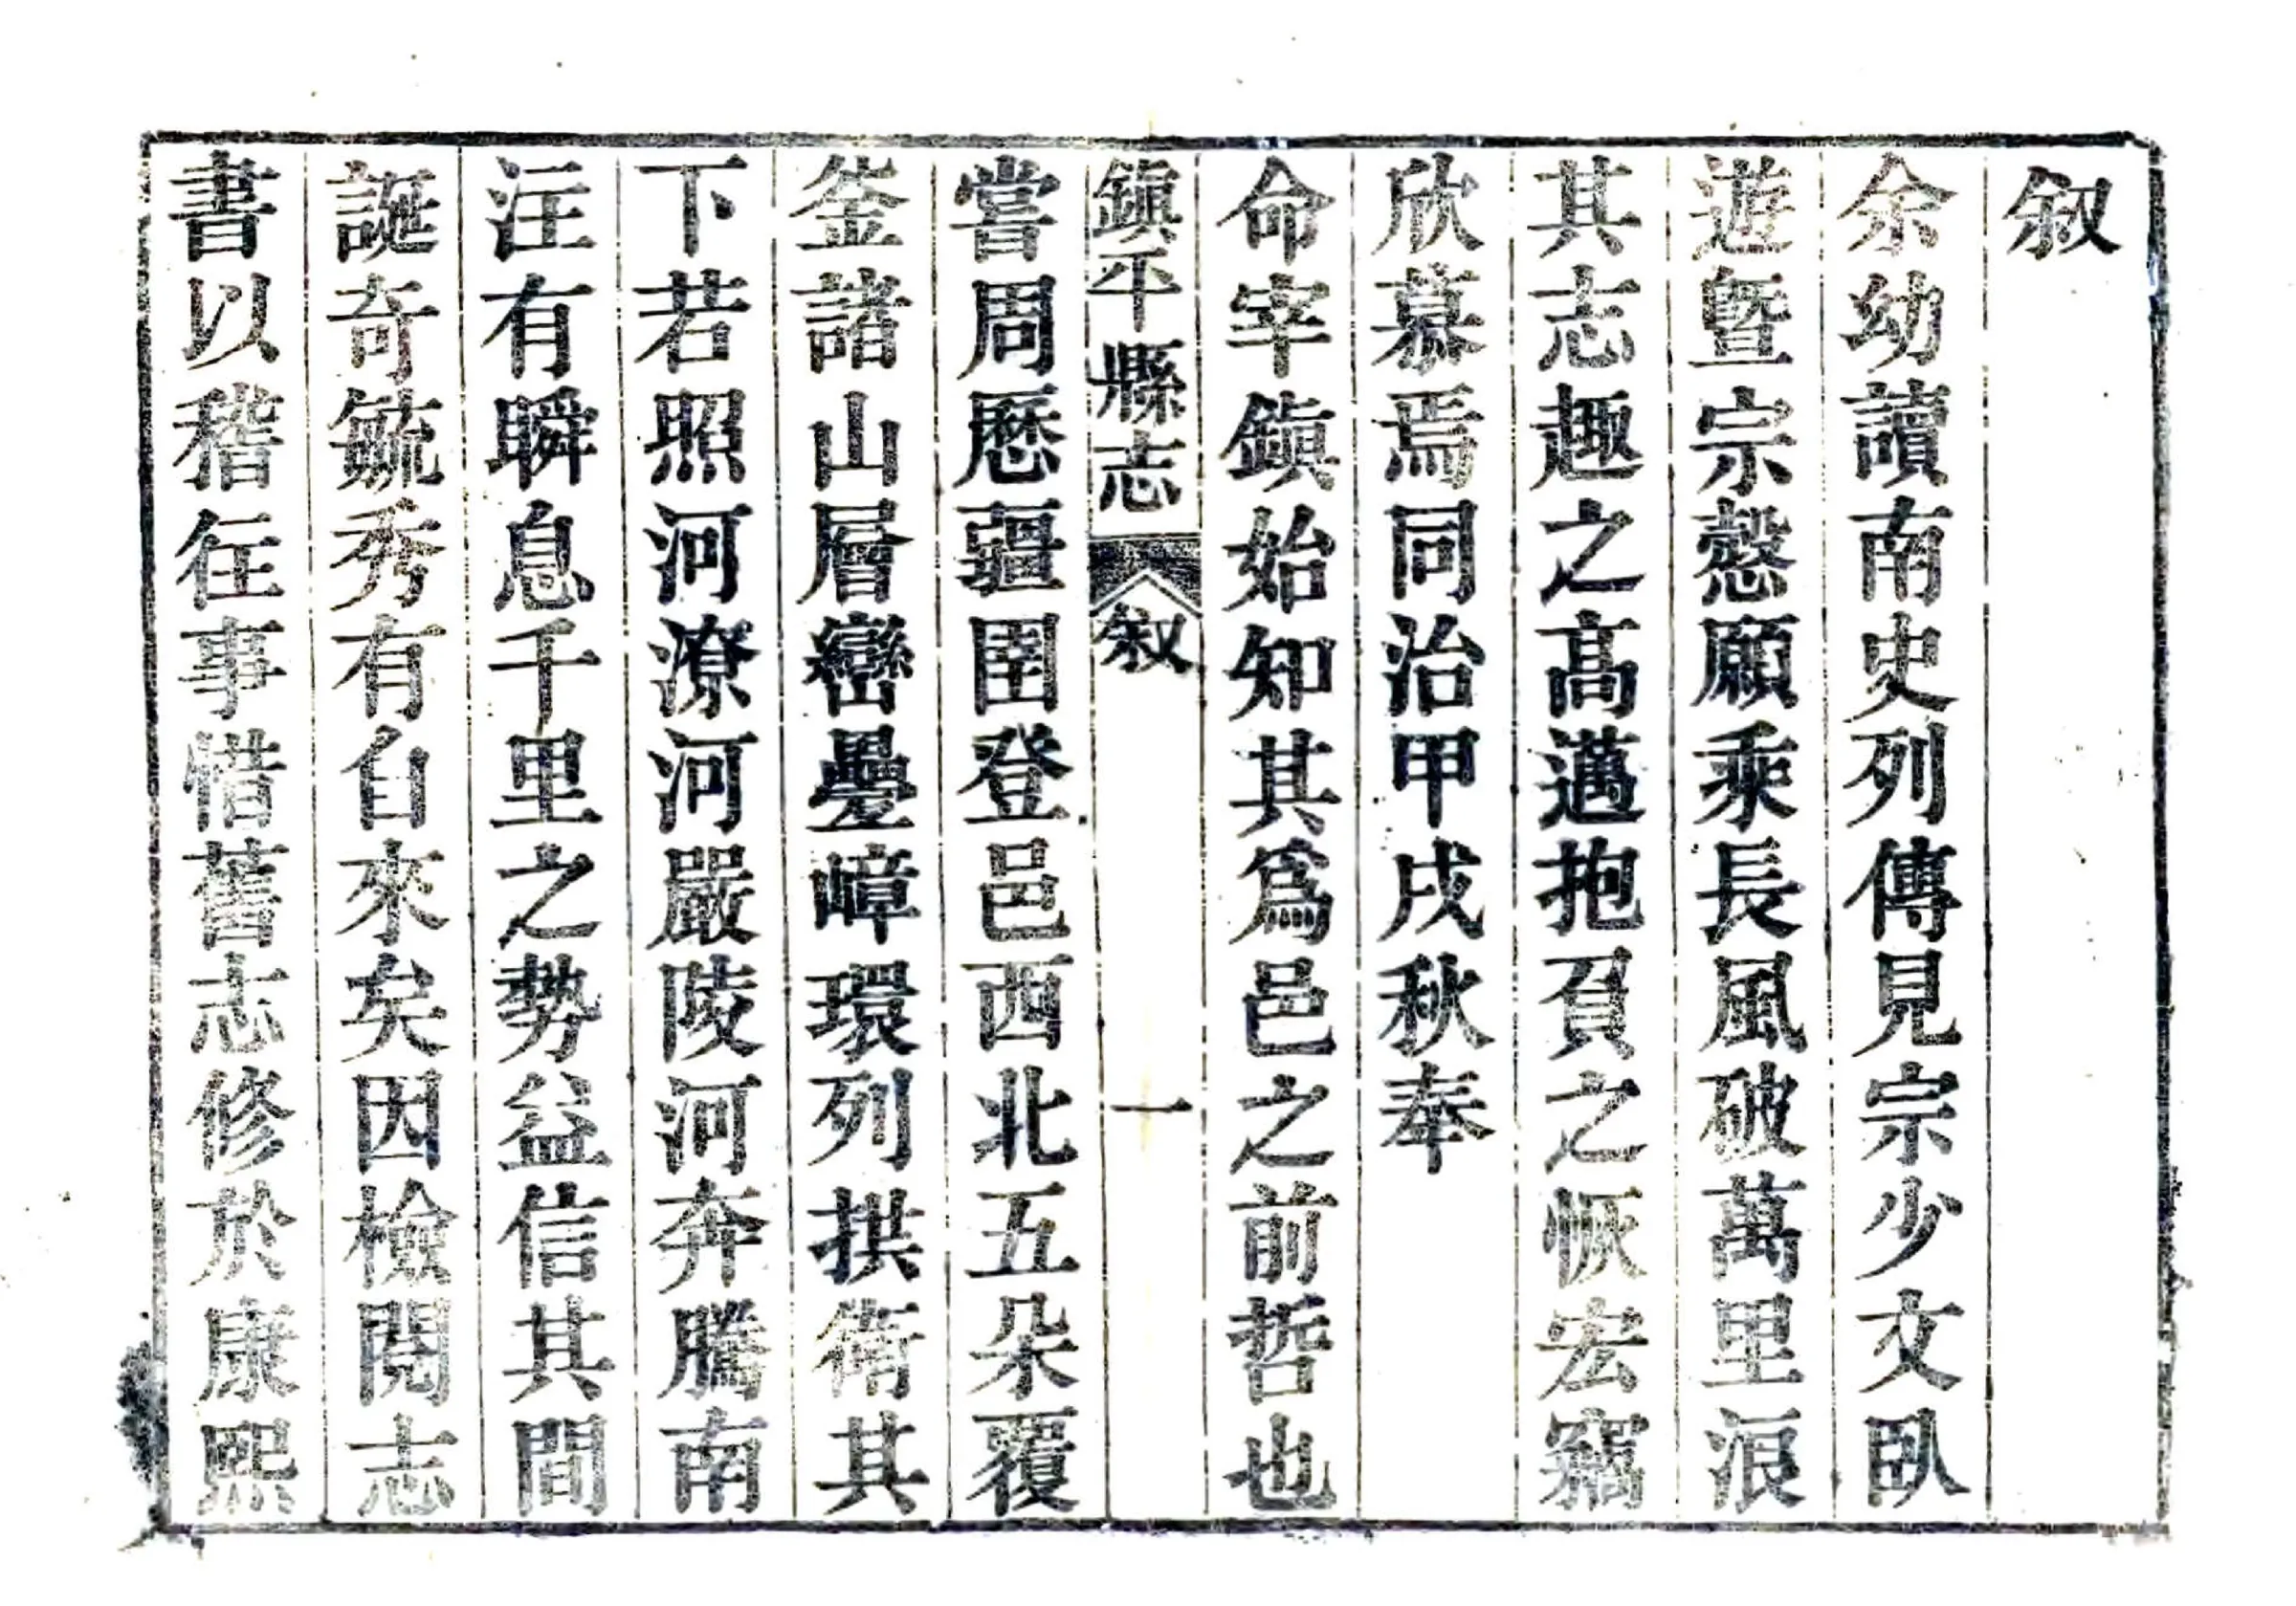 叙
余幼讀南史列傳見宗少文臥
遊暨宗愨願乘長風破萬里浪
其志趣之高邁抱負之恢宏竊
欣慕焉同治甲戌秋奉
命宰鎮始知其爲邑之前哲也
鎮平縣志 叙 一
嘗周厯疆圉登邑西北五朵覆
釜諸山層巒疊嶂環列拱衛其
下若照河潦河嚴陵河奔騰南
注有瞬息千里之勢益信其間
誕奇毓秀有自來矣因檢閱志
書以稽往事惜舊志修於康熙